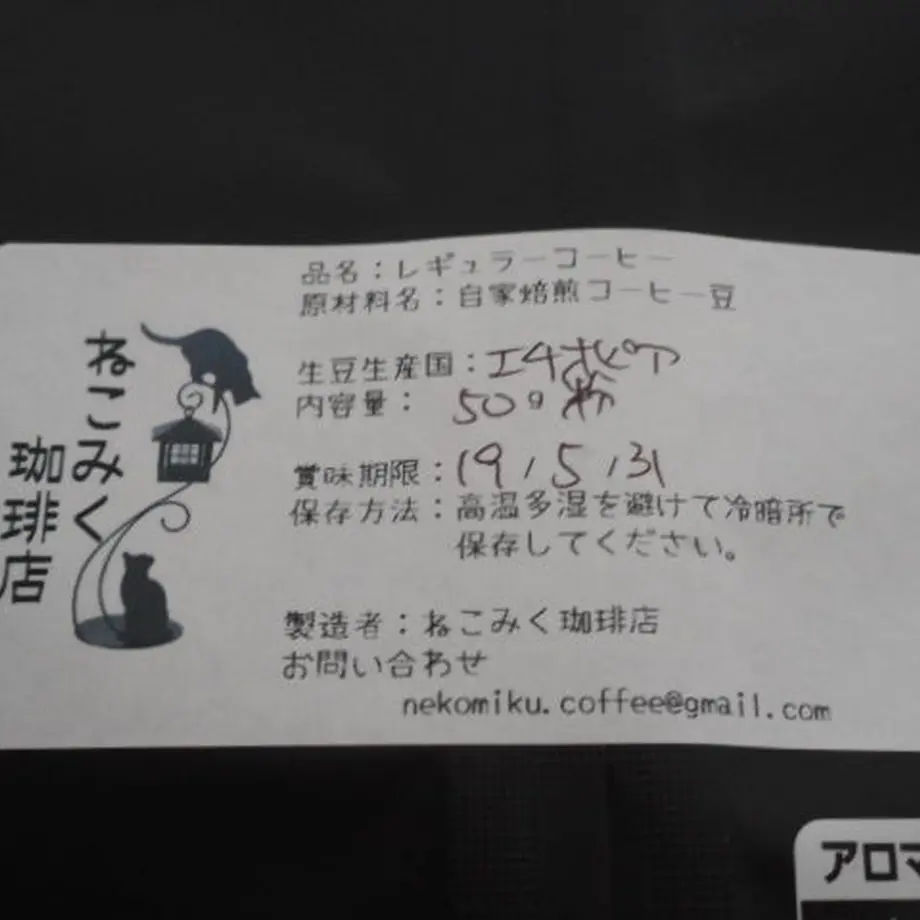 ねこみく
珈琲店
品名：レギュラーコーヒー
原材料名：自家焙煎コーヒー豆
生豆生産国：エチオピア
内容量： 50g 粉
賞味期限：19/5/31
保存方法：高温多湿を避けて冷暗所で
保存してください。
製造者：ねこみく珈琲店
お問い合わせ
nekomiku.coffee@gmail.com
アロマ